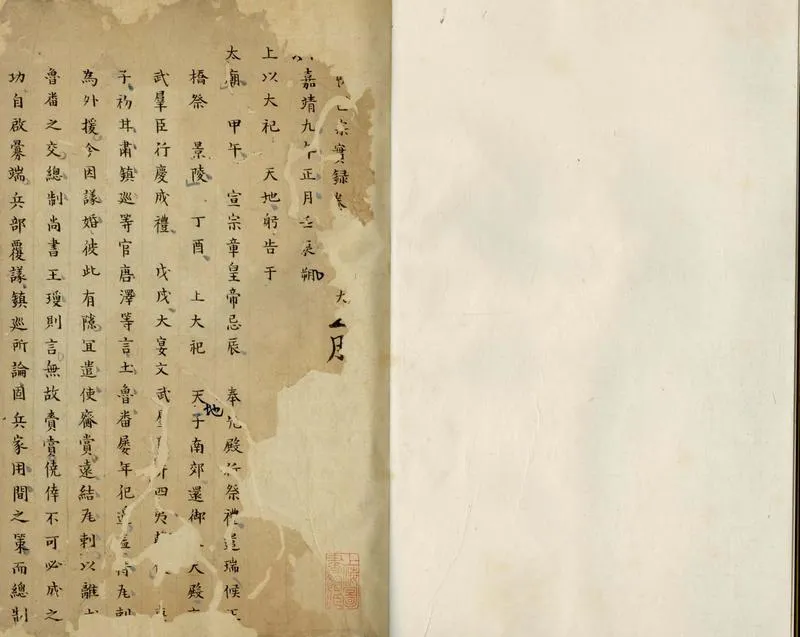 宗實録卷 大
月
嘉靖九年正月壬辰朔
上以大祀 天地躬告于
太廟 甲午 宣宗章皇帝忌辰 奉先殿行祭禮遣瑞候
橋祭 景陵 丁酉 上大祀 天地于南郊還御 天殿
武羣臣行慶成禮 戊戌大宴文武 四
子初甘肅鎮巡等官唐澤等言土魯番屡年犯邊 瓦剌
為外援今因議婚彼此有隙冝遣使賫賞遠結瓦剌以離土
魯番之交總制尚書王瓊則言無故賫賞僥倖不可必成之
功自啟釁端兵部覆議鎮巡所論固兵家用間之策而總制